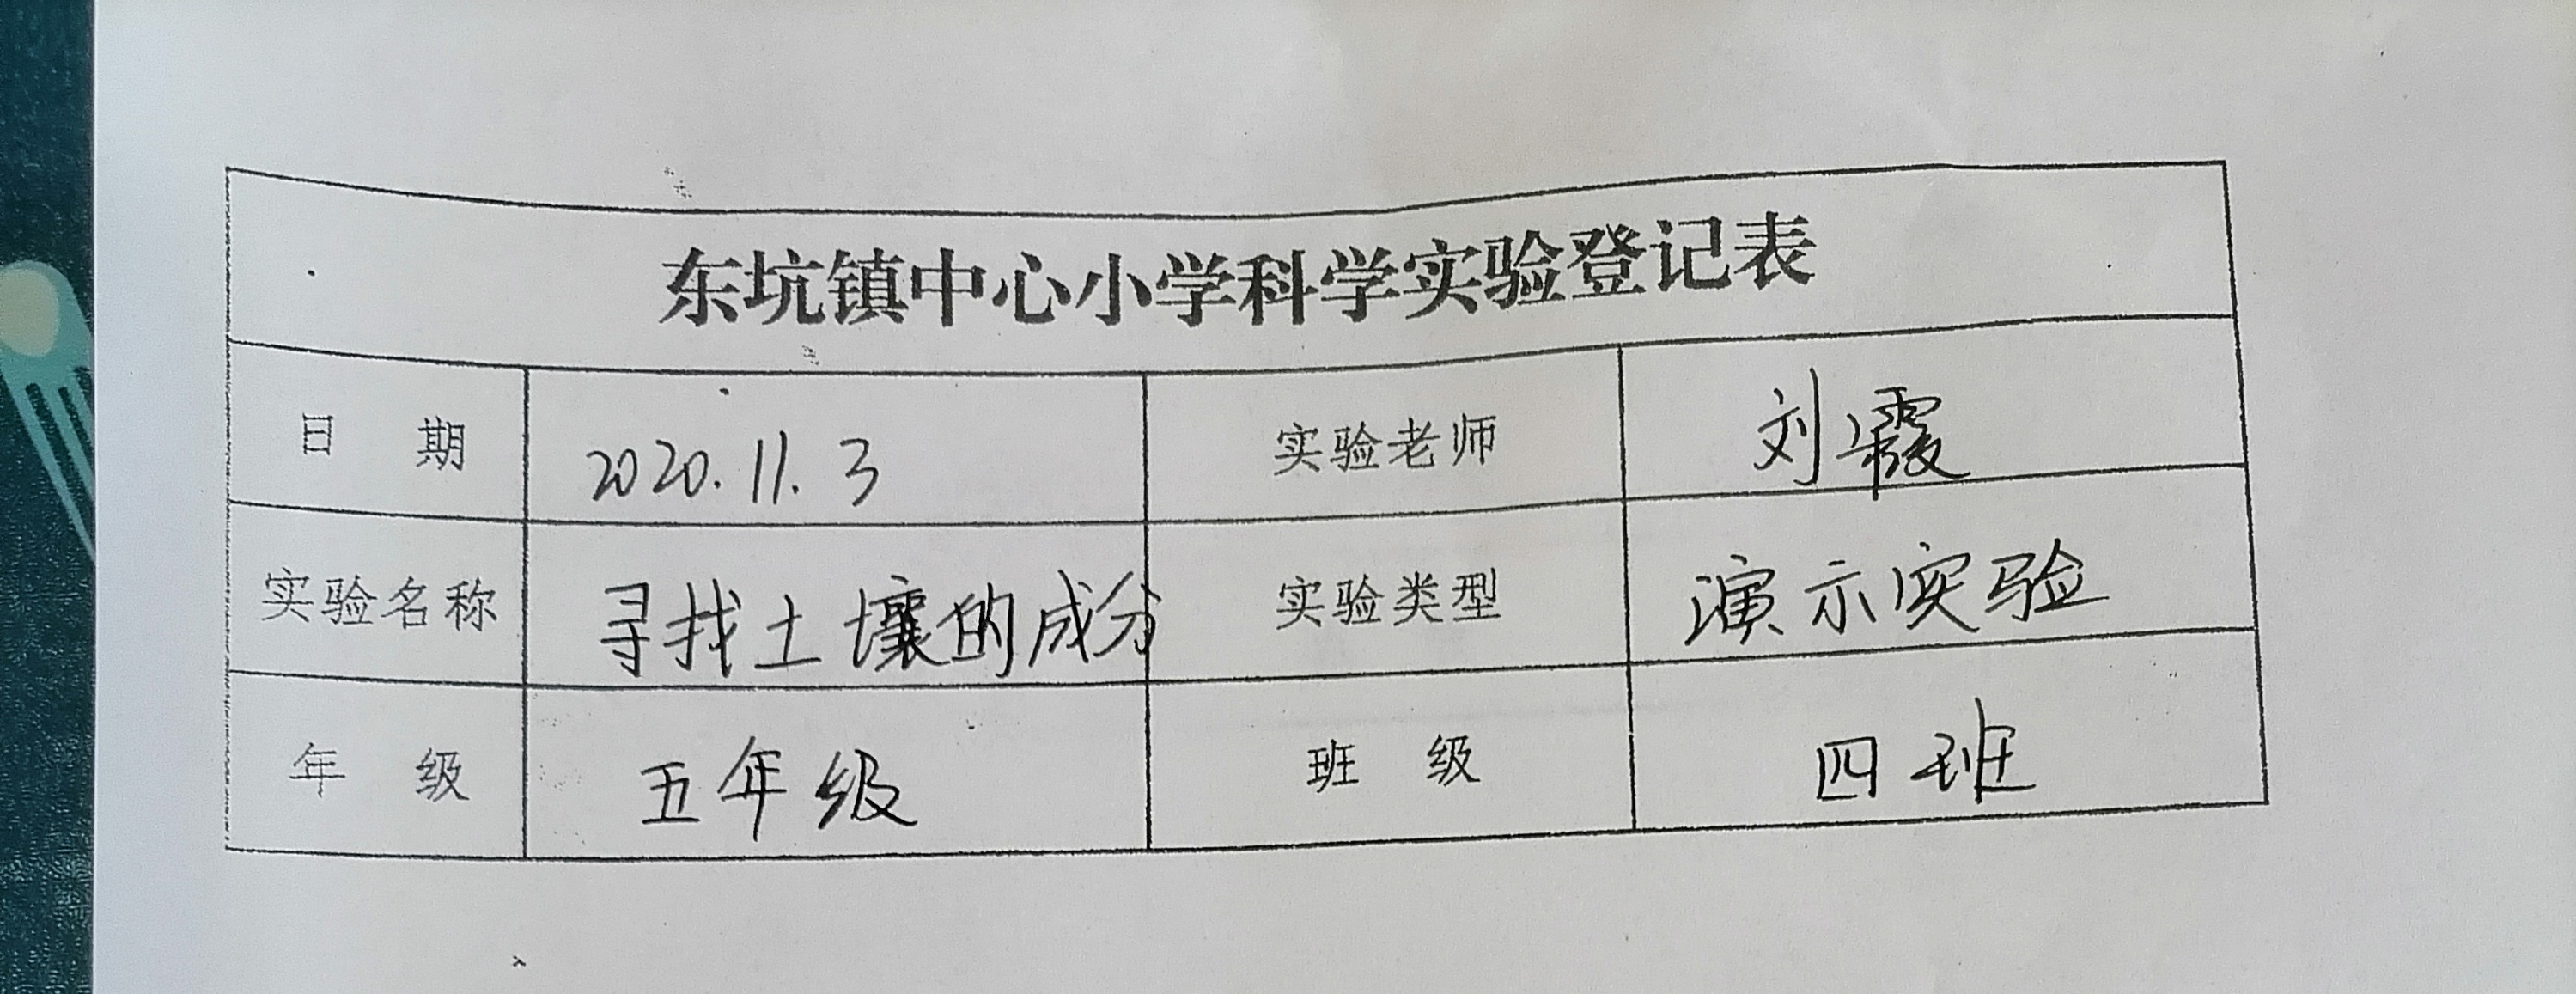 东坑镇中心小学科学实验登记表
日 期 2020.11.3 实验老师 刘霞
实验名称 寻找土壤的成分 实验类型 演示实验
年 级 五年级 班 级 四班